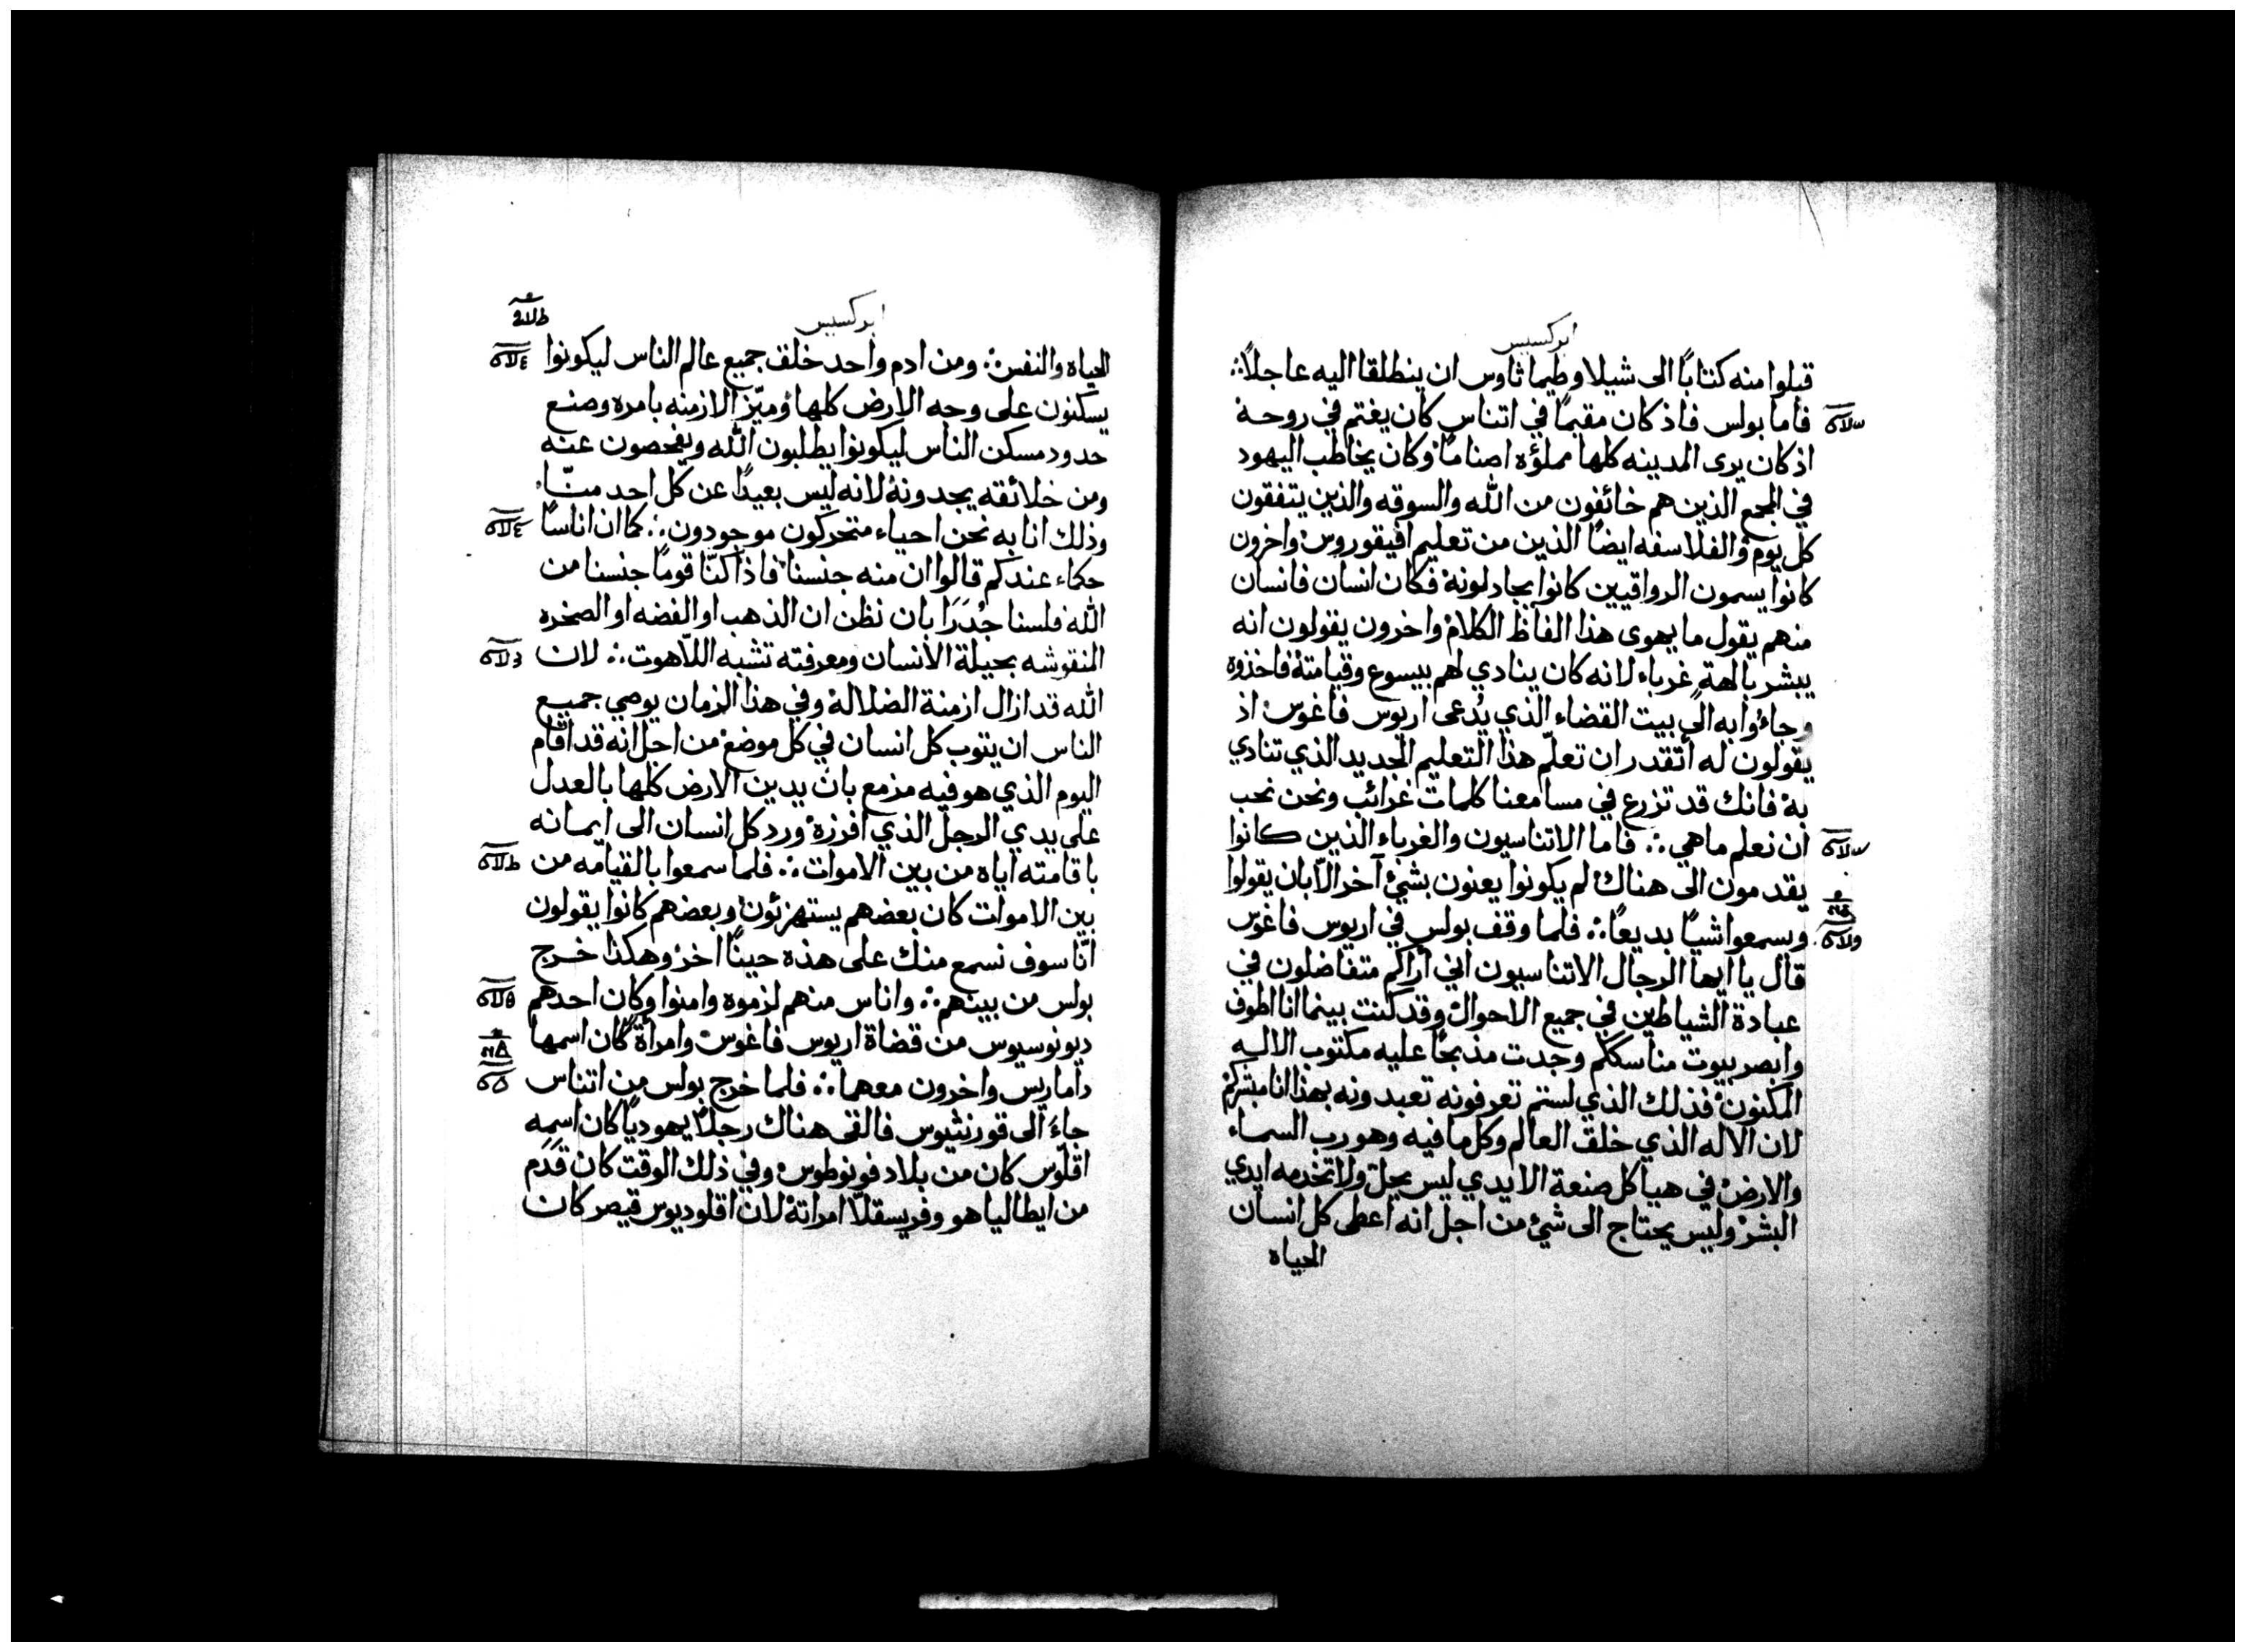 ابركسيس
قبلوا منه كتابًا الى شيلا وطيماثاوس ان ينطلقا اليه عاجلاً∴
فاما بولس فاذ كان مقيمًا في اتناس كان يغتم في روحه
اذ كان يرى المدينه كلها مملؤه اصنامًا وكان يخاطب اليهود
في المجمع الذين هم خائفون من الله والسوقه والذين يتفقون
كل يوم والفلاسفه ايضًا الذين من تعليم افيقوروس واخرون
كانوا يسمون الرواقيين كانوا يجادلونه فكان انسان فانسان
منهم يقول ما يهوى هذا الفاظ الكلام واخرون يقولون انه
يبشر بالهة غرباء لانه كان ينادي لهم بيسوع وقيامته فاخذوه
وجاءُوا به الى بيت القضاء الذي يُدعى اريوس فاغوس اذ
يقولون له أتقدر ان تعلّم هذا التعليم الجديد الذي تنادي
به فانك قد تزرع في مسامعنا كلمات غرائب ونحن نحب
ان نعلم ماهي∴ فاما الاتناسيون والغرباء الذين كانوا
يقدمون الى هناك لم يكونوا يعنون بشيءٍ آخر الّا بان يقولوا
ويسمعوا شيًا بديعًا∴ فلما وقف بولس في اريوس فاغوس
قال يا ايها الرجال الاتناسيون اني أراكم متفاضلون في
عبادة الشياطين في جميع الاحوال وقد كنت بينما انا اطوف
وابصر بيوت مناسككم وجدت مذبحًا عليه مكتوب الاله
المكنون فذلك الذي لستم تعرفونه تعبدونه بهذا انا مبشركم
لان الاله الذي خلق العالم وكل ما فيه وهو رب السماء
والارض في هياكل صنعة الايدي ليس يحلّ ولا تخدمه ايدي
البشر وليس يحتاج الى شيءٍ من اجل انه اعطى كل انسان
الحياه
ابركسيس
الحياه والنفس∴ ومن ادم واحد خلق جميع عالم الناس ليكونوا
يسكنون على وجه الارض كلها وميّز الازمنه بامره وصنع
حدود مسكن الناس ليكونوا يطلبون الله ويفحصون عنه
ومن خلائقه يجدونه لانه ليس بعيدًا عن كل احد منّا
وذلك انا به نحن احياء متحركون موجودون∴ كما ان اناسًا
حكماء عندكم قالوا ان منه جنسنا فاذا كنّا قومًا جنسنا من
الله فلسنا جُدَرَا بان نظن ان الذهب او الفضه او الصخره
المنقوشه بحيلة الانسان ومعرفته تشبه اللّاهوت∴ لان
الله قد ازال ازمنة الضلاله وفي هذا الزمان يوصي جميع
الناس ان يتوب كل انسان في كل موضع من اجل انه قد اقام
اليوم الذي هو فيه مزمع بان يدين الارض كلها بالعدل
على يدي الرجل الذي افرزه ورد كل انسان الى ايمانه
باقامته اياه من بين الاموات∴ فلما سمعوا بالقيامه من
بين الاموات كان بعضهم يستهزئون وبعضهم كانوا يقولون
انّا سوف نسمع منك على هذه حينًا اخر وهكذا خرج
بولس من بينهم∴ واناس منهم لزموه وامنوا وكان احدهم
ديونوسيوس من قضاة اريوس فاغوس وامرأة كان اسمها
داماريس واخرون معهما∴ فلما خرج بولس من اتناس
جاءَ الى قورنثيوس فالقى هناك رجلاً يهوديًا كان اسمه
اقلّوس كان من بلاد فونوطوس وفي ذلك الوقت كان قدم
من ايطاليا هو وفريسقلّا امراته لان اقلوديوس قيصر كان